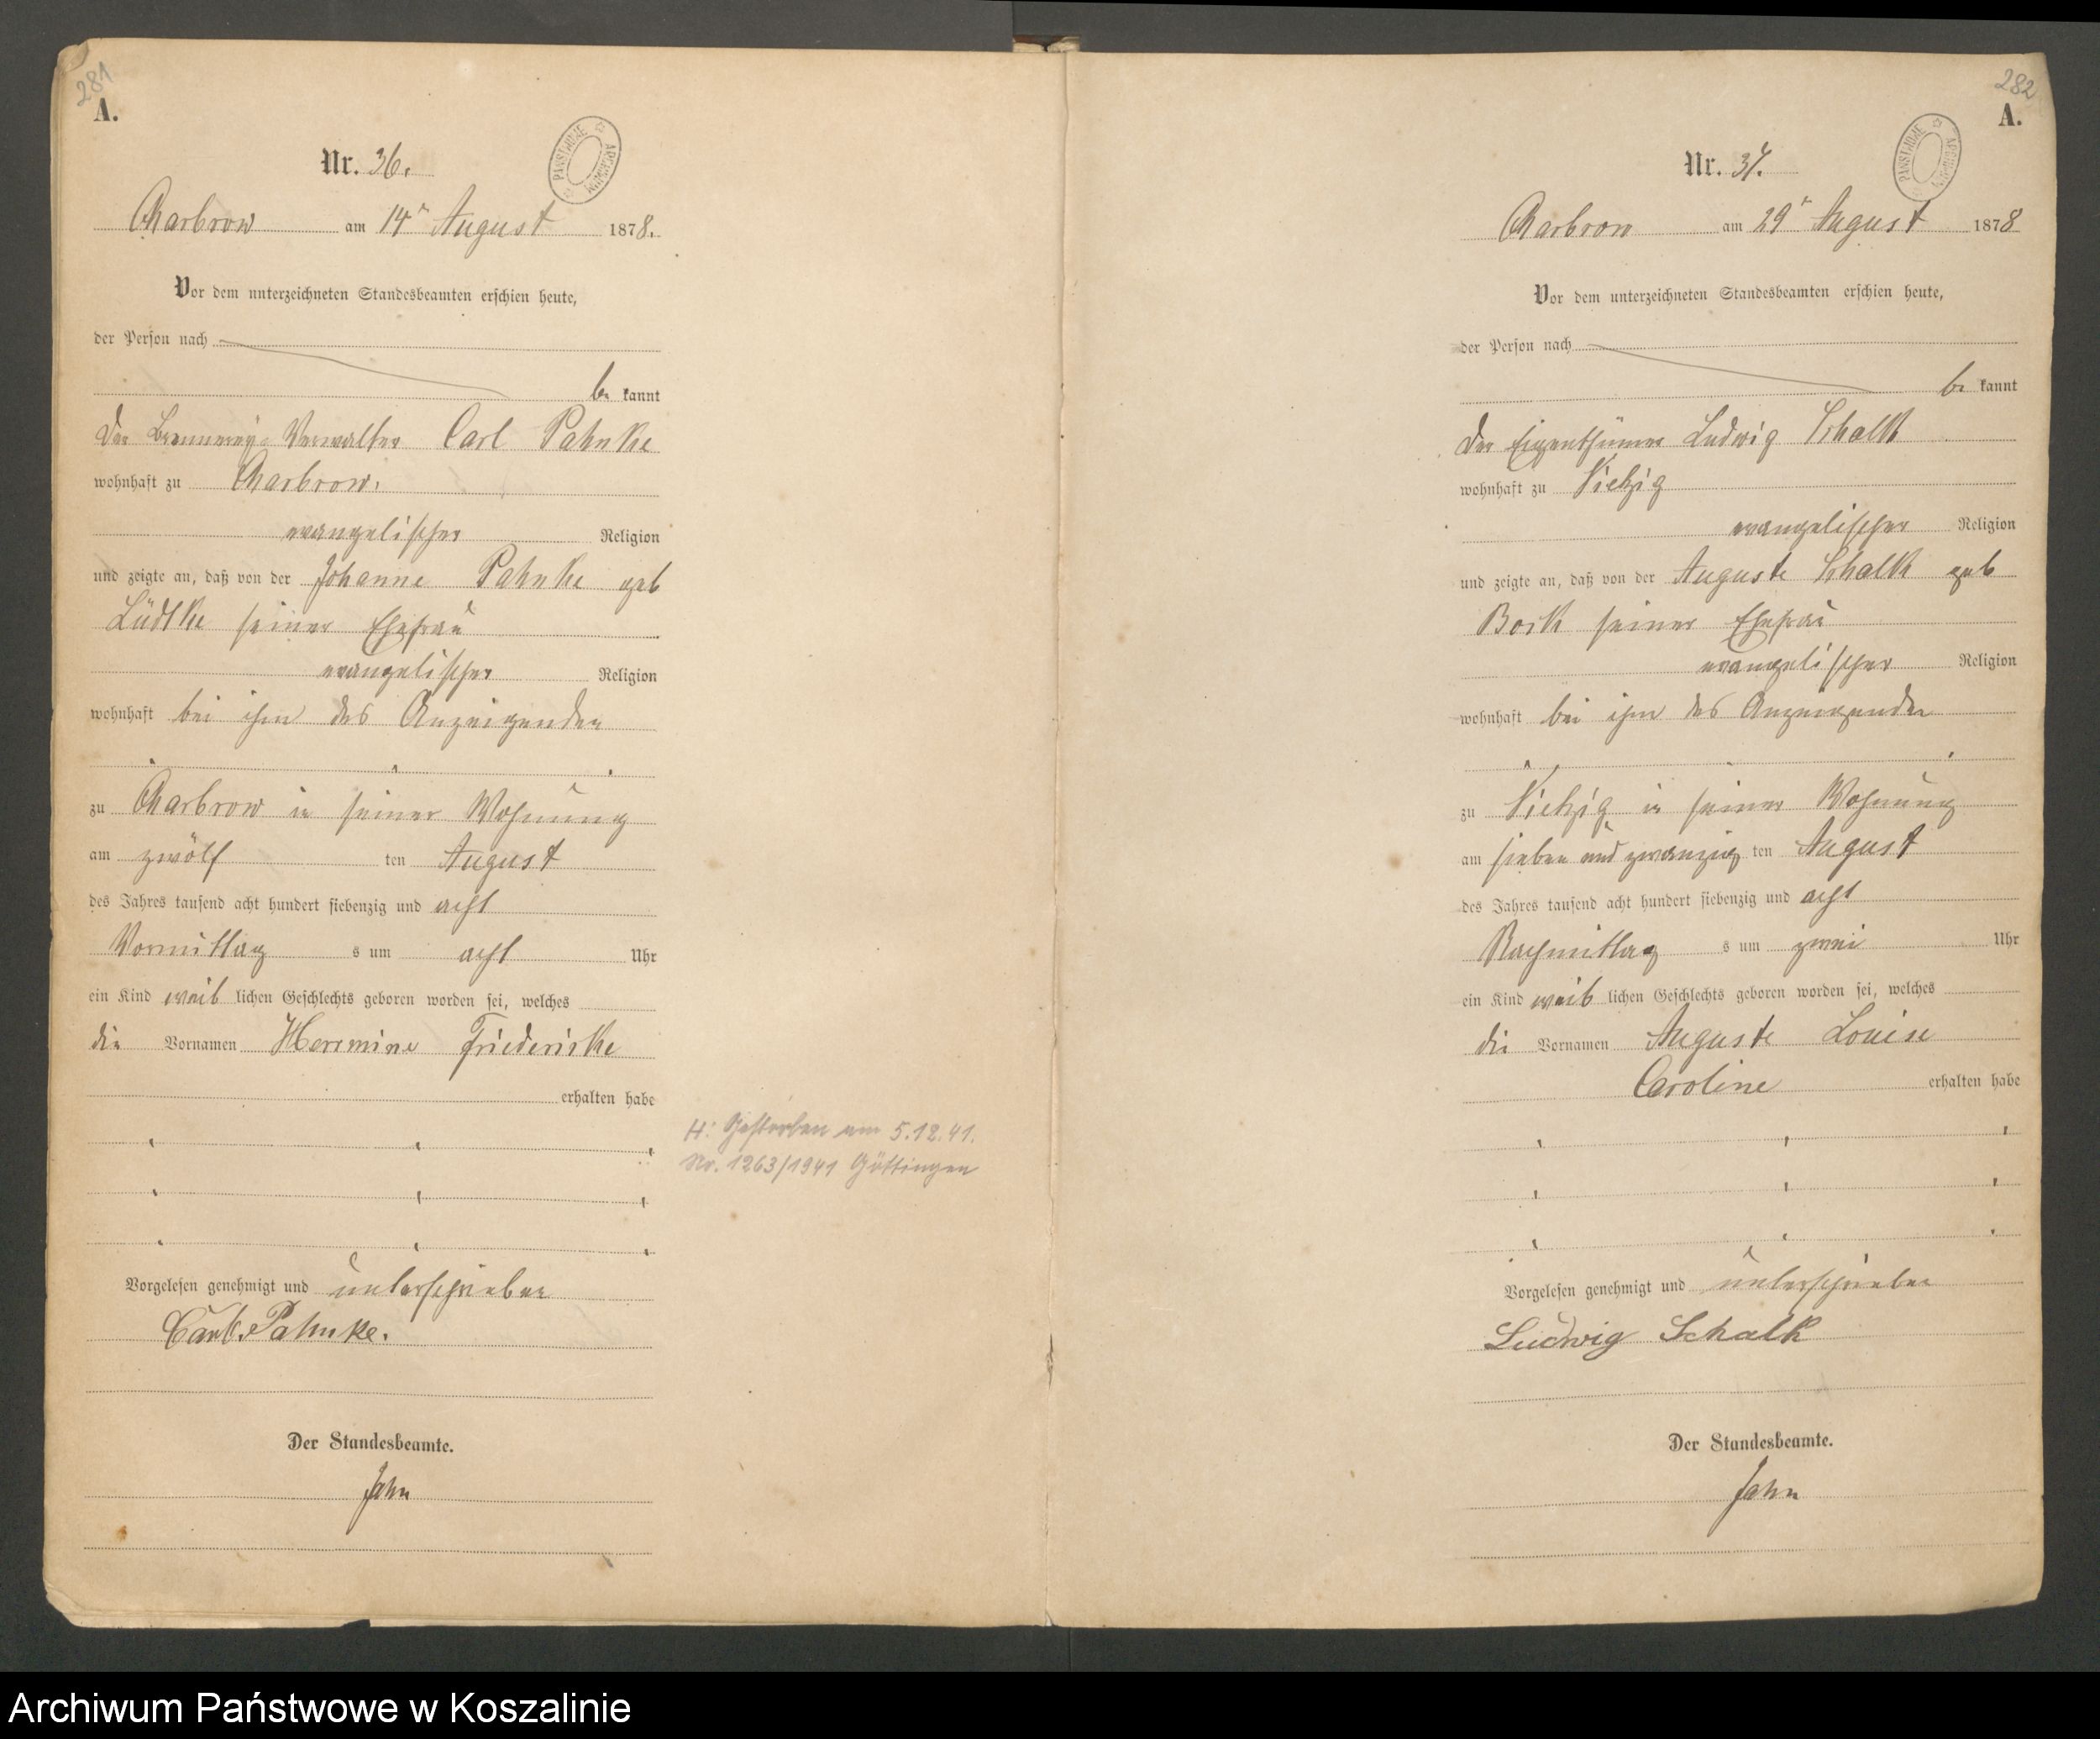 281
A.
PAŃSTWOWE ARCHIWUM
Nr. 36.
Charbrow am 14n August 1878.
Vor dem unterzeichneten Standesbeamten erschien heute,
der Person nach
be kannt
der Brennerey-Verwalter Carl Pahnke
wohnhaft zu Charbrow.
evangelischer Religion
und zeigte an, daß von der Johanne Pahnke geb
Lüdtke seiner Ehefrau
evangelischer Religion
wohnhaft bei ihm des Anzeigenden
zu Charbrow in seiner Wohnung
am zwölf ten August
des Jahres tausend acht hundert siebenzig und acht
Vormittag s um acht Uhr
ein Kind weib lichen Geschlechts geboren worden sei, welches
die Vornamen Hermine Friederike
erhalten habe
H: Gestorben am 5.12.41.
Nr. 1263/1941 Göttingen
Vorgelesen genehmigt und unterschrieben
Carl Pahnke.
Der Standesbeamte.
Jahn
282
A.
PAŃSTWOWE ARCHIWUM
Nr. 37.
Charbrow am 29n August 1878
Vor dem unterzeichneten Standesbeamten erschien heute,
der Person nach
be kannt
der Eigenthümer Ludwig Schalk
wohnhaft zu Vietzig
evangelischer Religion
und zeigte an, daß von der Auguste Schalk geb
Bork seiner Ehefrau
evangelischer Religion
wohnhaft bei ihm des Anzeigenden
zu Vietzig in seiner Wohnung
am sieben und zwanzig ten August
des Jahres tausend acht hundert siebenzig und acht
Nachmittag s um zwei Uhr
ein Kind weib lichen Geschlechts geboren worden sei, welches
die Vornamen Auguste Louise
Caroline erhalten habe
Vorgelesen genehmigt und unterschrieben
Ludwig Schalk
Der Standesbeamte.
Jahn
Archiwum Państwowe w Koszalinie